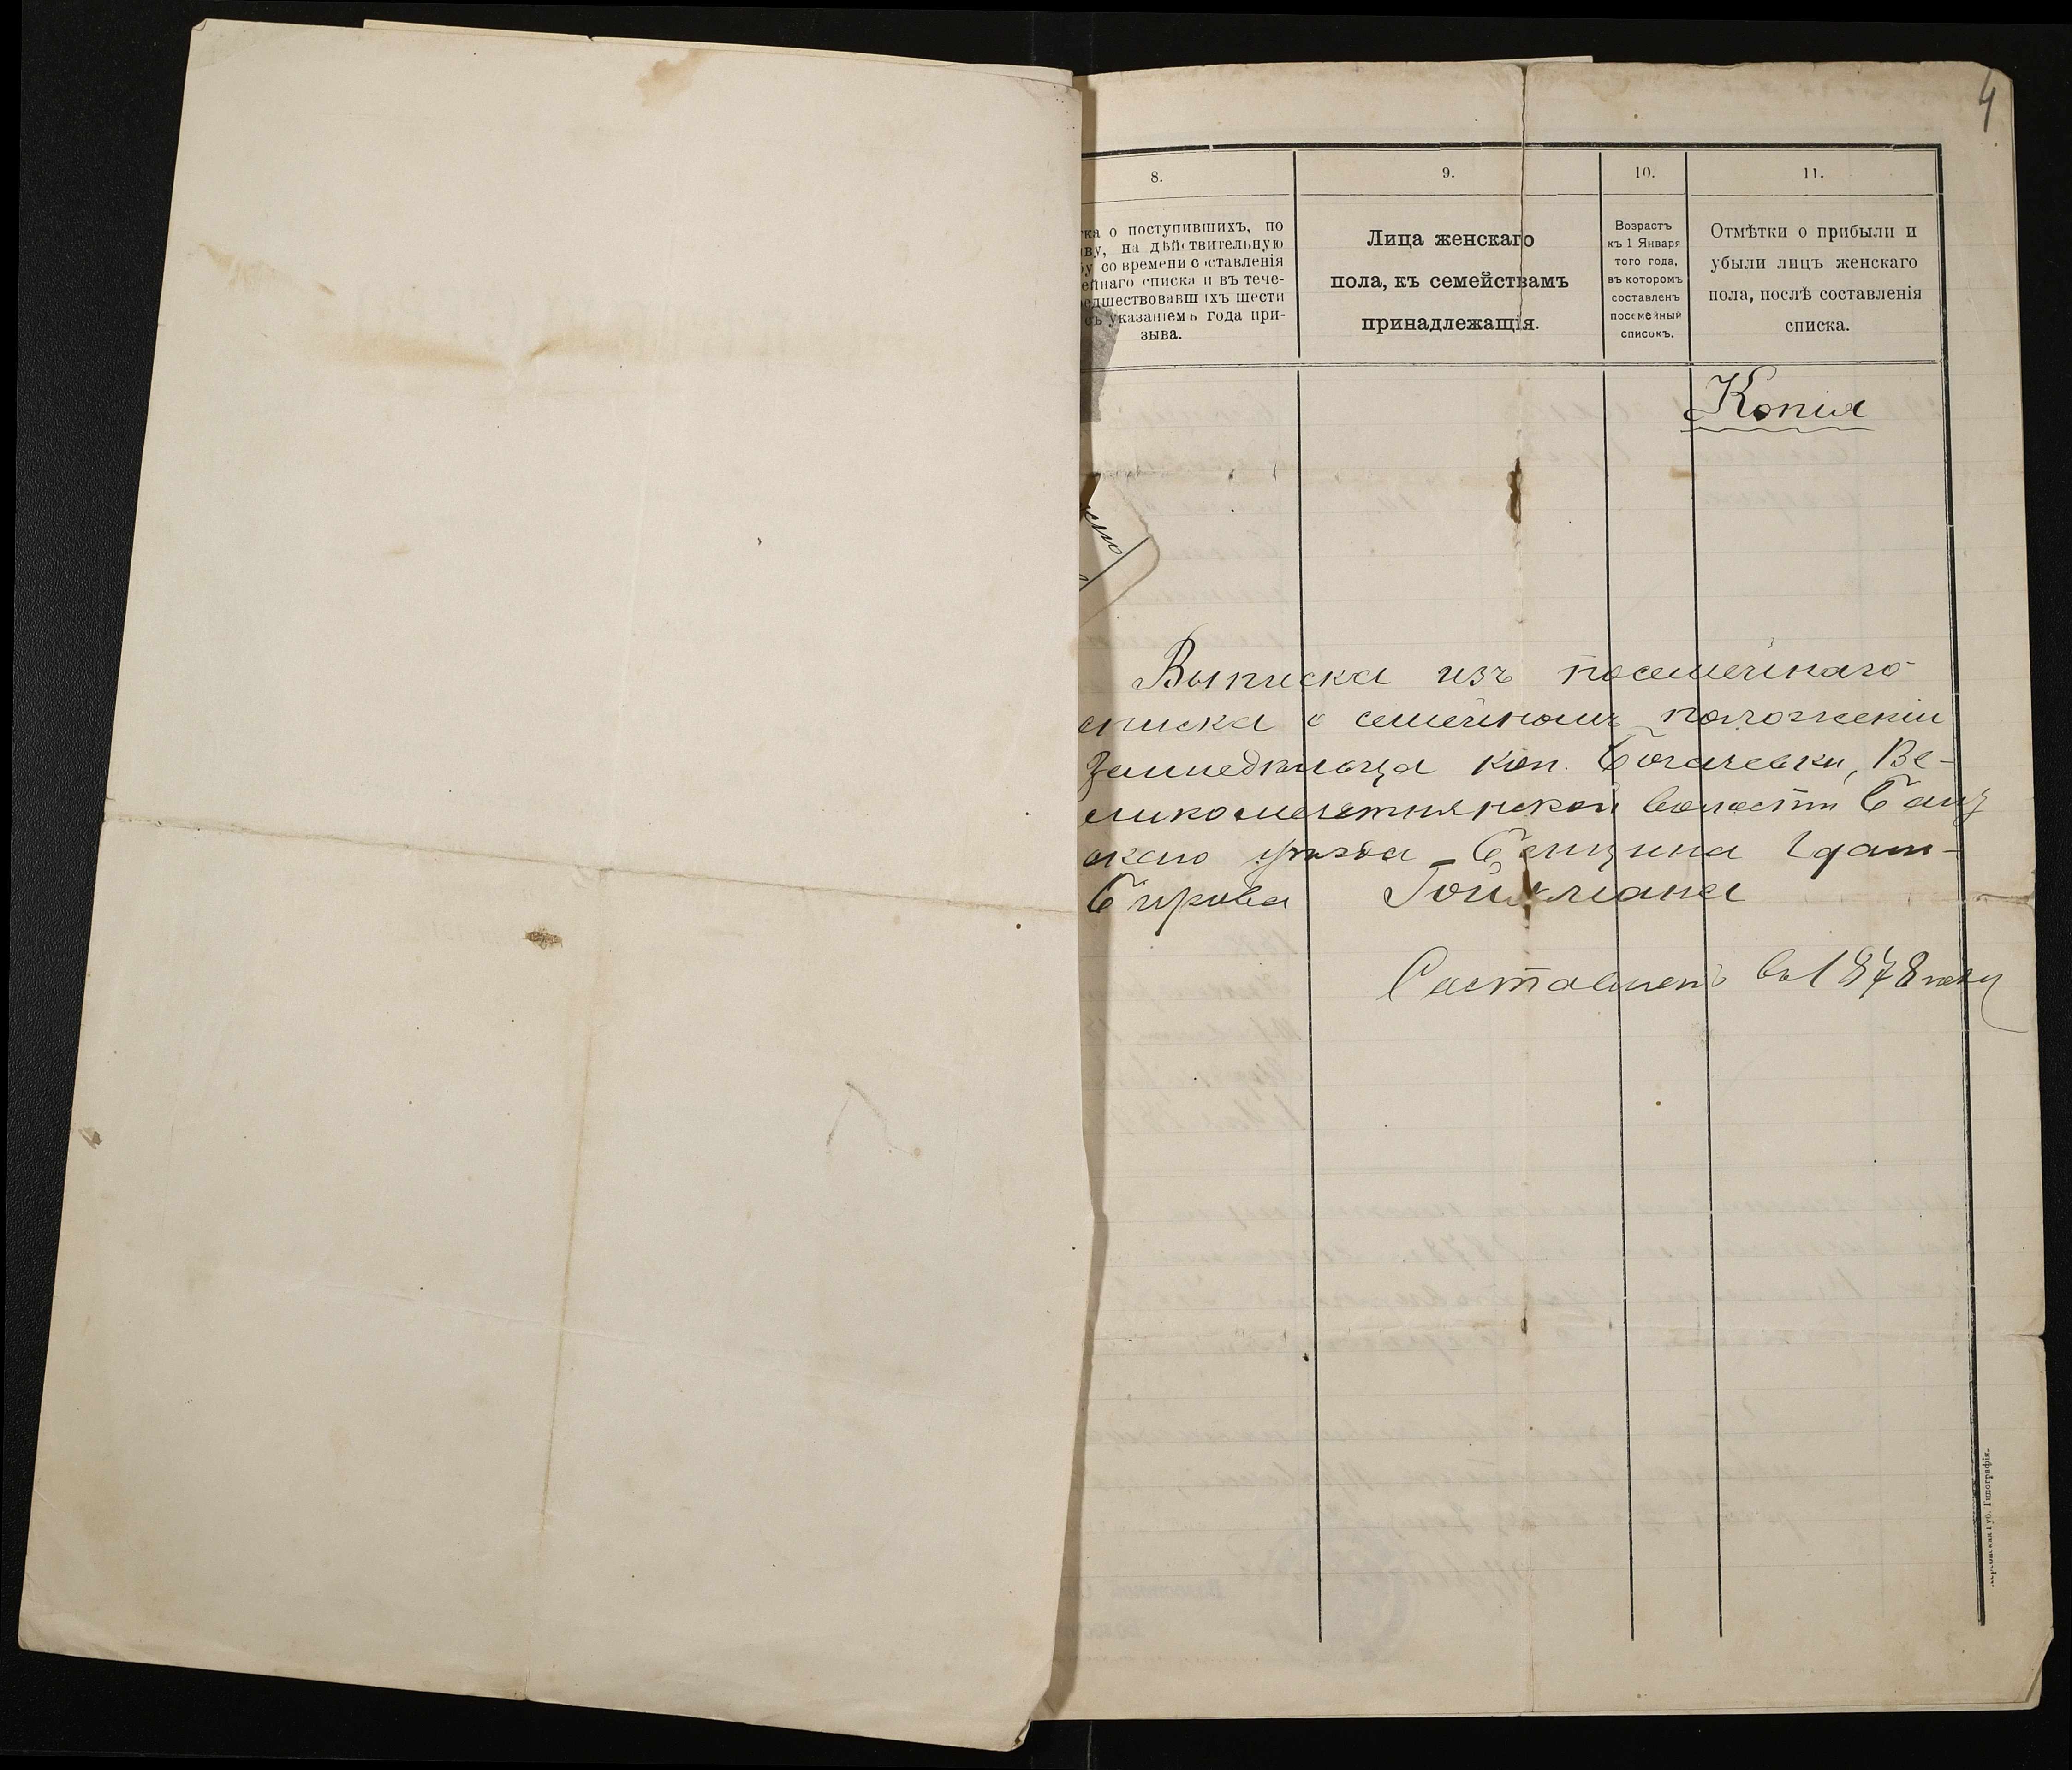 4
8.
9.
10.
11.
о поступившихъ, по
на дѣйствительную
со времени составленія
списка и въ тече-
шести
указаніемъ года при-
зыва.
Лица женскаго
пола, къ семействамъ
принадлежащія.
Возрастъ
къ 1 Января
того года,
въ которомъ
составленъ
посемейный
списокъ.
Отмѣтки о прибыли и
убыли лицъ женскаго
пола, послѣ составленія
списка.
Копія
Выписка изъ посемейнаго
списка о семейномъ положеніи
Земледѣльца кол. Богачевки, Ве-
ликомечетнянской волости
уѣзда
Гойхмана
Составленъ въ 1878 году
Губ. Типографія.